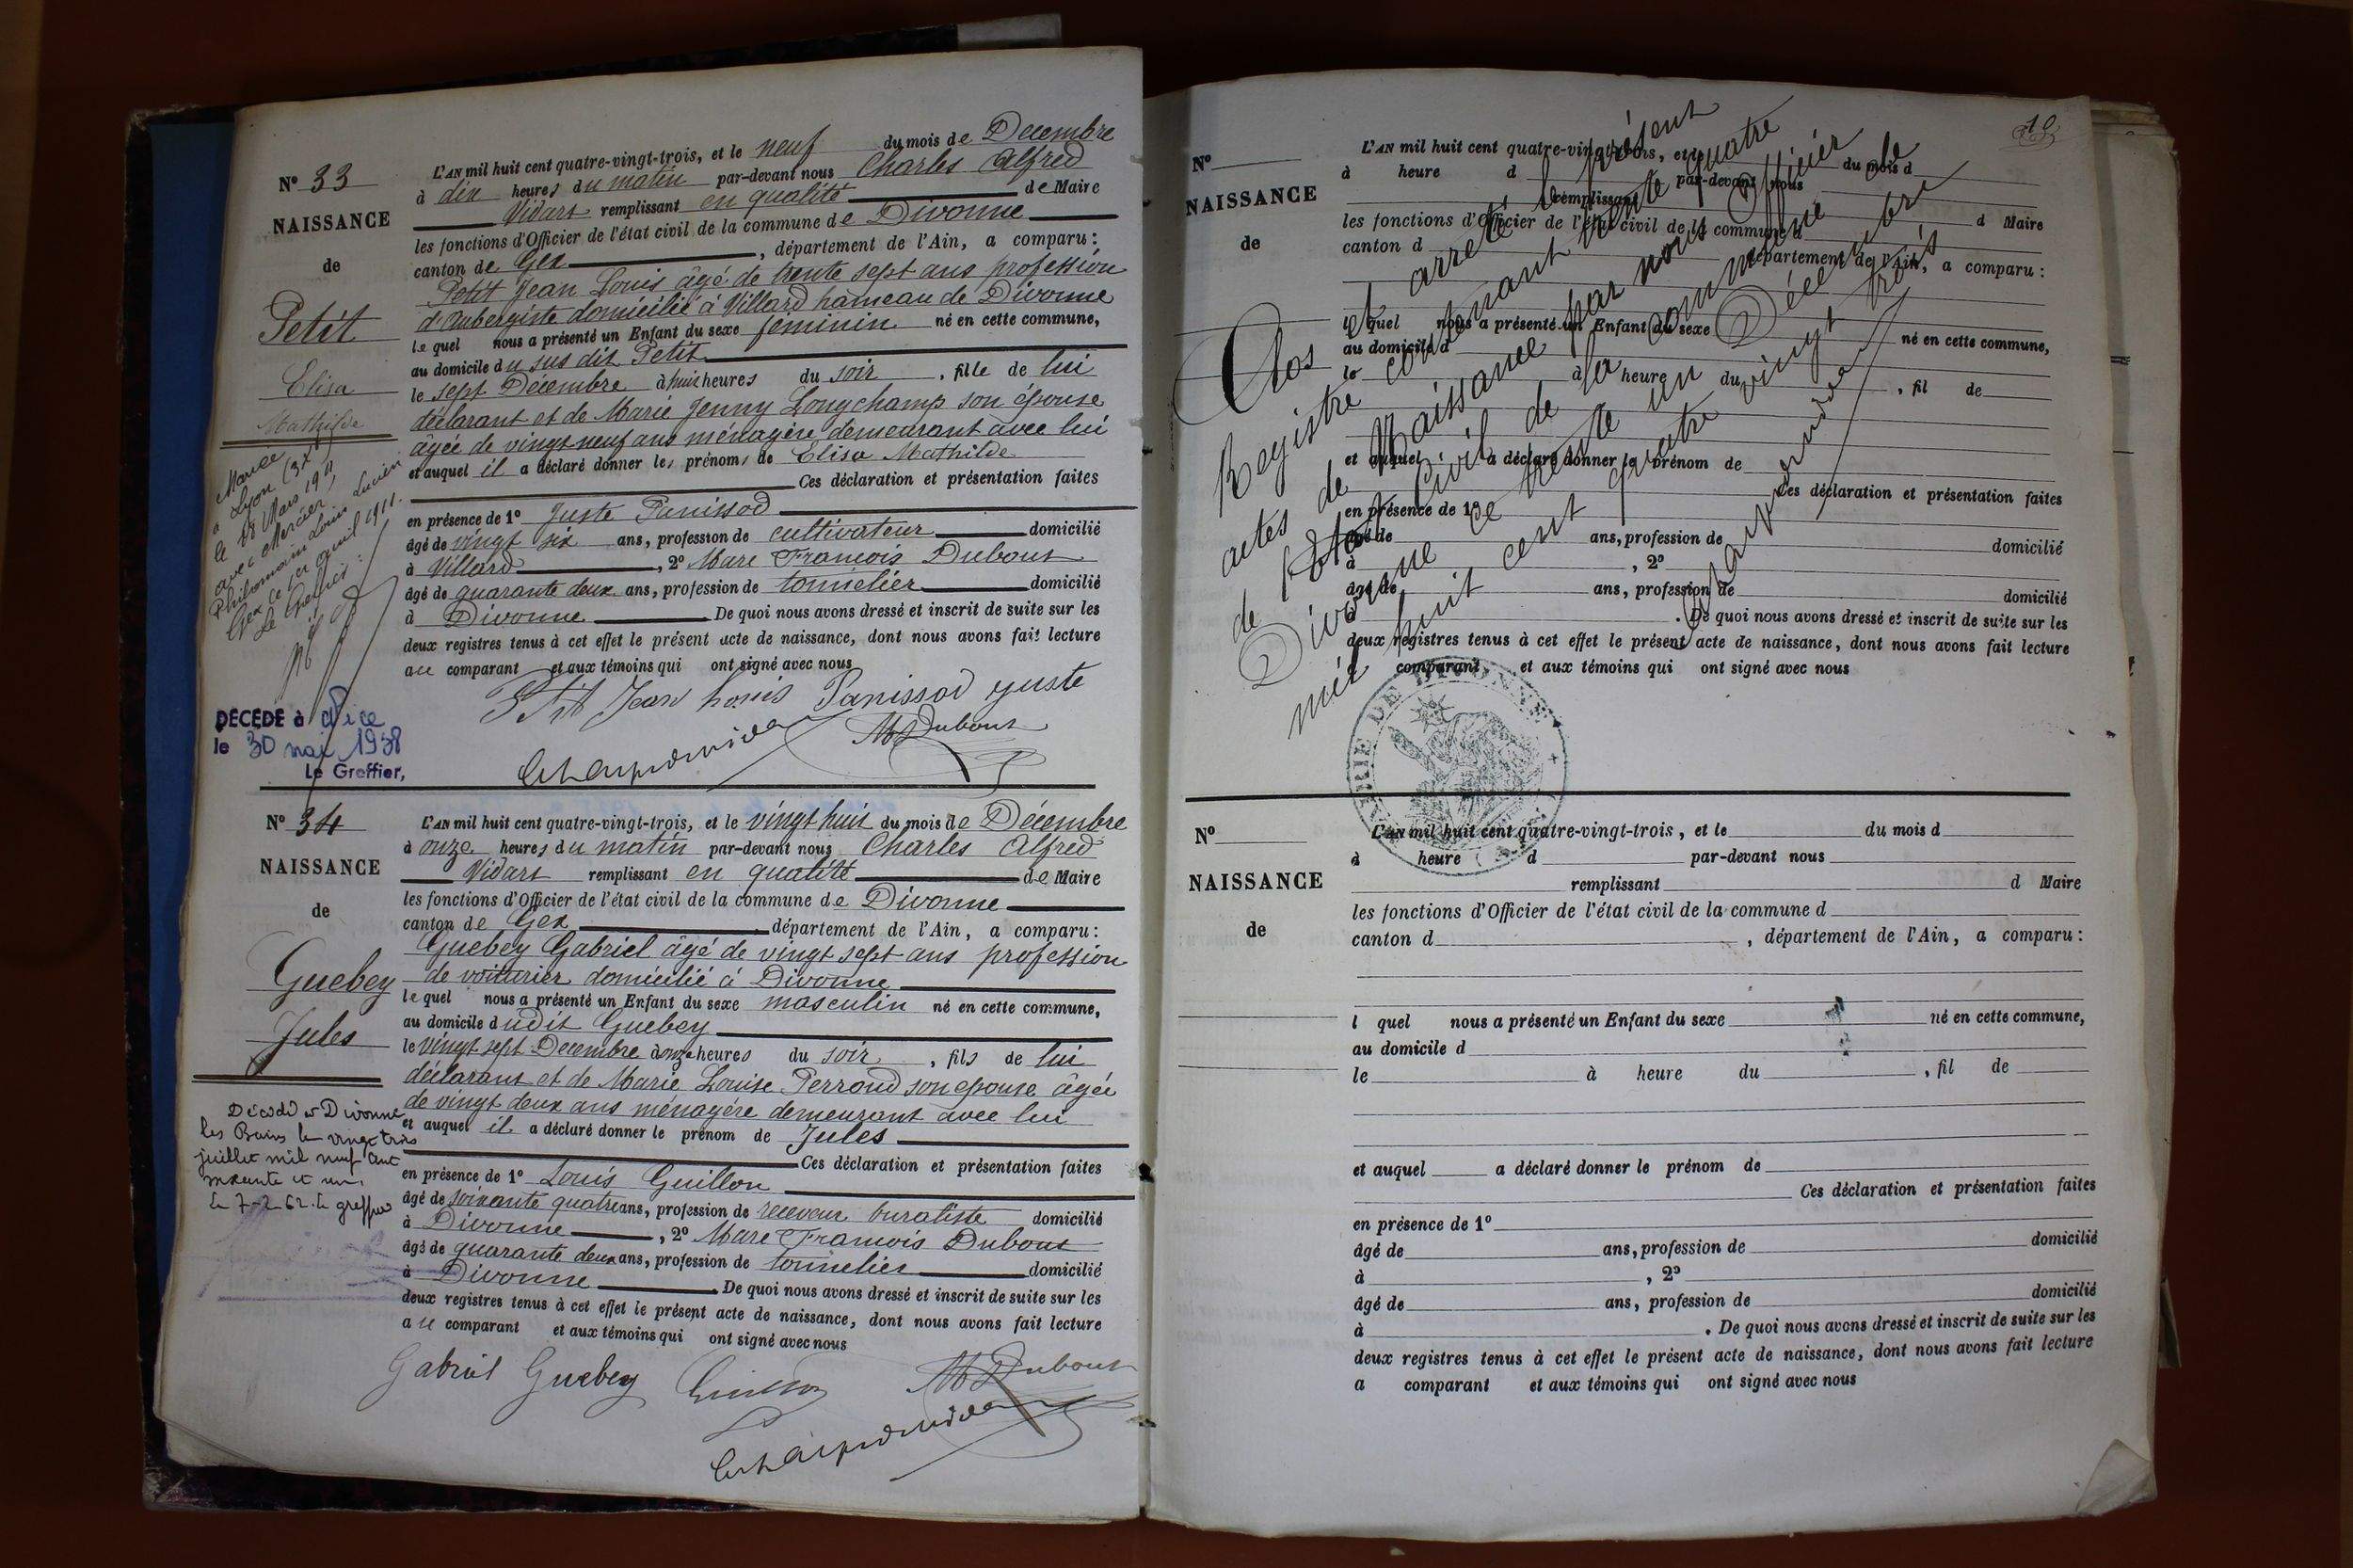 N° 33
NAISSANCE
de
Petit
Elisa
Mathilde
Mariée
à Lyon (3e)
le 18 Mars 1911
avec Mercier
Philomain Louis Lucien
Gex ce 1er avril 1911.
Le Greffier:
DÉCÉDÉ à Nice
le 30 mai 1938
Le Greffier,
L'AN mil huit cent quatre-vingt-trois, et le neuf du mois de Décembre
à dix heures du matin par-devant nous Charles Alfred
Vidart remplissant en qualité de Maire
les fonctions d'Officier de l'état civil de la commune de Divonne
canton de Gex, département de l'Ain, a comparu:
Petit Jean Louis âgé de trente sept ans profession
d'Aubergiste domicilié à Villard hameau de Divonne
lequel nous a présenté un Enfant du sexe féminin né en cette commune,
au domicile du sus dit Petit
le sept Décembre à huit heures du soir, fille de lui
déclarant et de Marie Jenny Longchamp son épouse
âgée de vingt neuf ans ménagère demeurant avec lui
et auquel il a déclaré donner les prénoms de Elisa Mathilde
Ces déclaration et présentation faites
en présence de 1° Juste Panissod
âgé de vingt six ans, profession de cultivateur domicilié
à Villard, 2° Marc François Dubout
âgé de quarante deux ans, profession de tonnelier domicilié
à Divonne. De quoi nous avons dressé et inscrit de suite sur les
deux registres tenus à cet effet le présent acte de naissance, dont nous avons fait lecture
au comparant et aux témoins qui ont signé avec nous
Petit Jean Louis Panissod Juste
MDubout
N° 34
NAISSANCE
de
Guebey
Jules
Décédé à Divonne
les Bains le vingt trois
juillet mil neuf cent
soixante et un.
Le 7-2-62. Le greffier
L'AN mil huit cent quatre-vingt-trois, et le vingt huit du mois de Décembre
à onze heures du matin par-devant nous Charles Alfred
Vidart remplissant en qualité de Maire
les fonctions d'Officier de l'état civil de la commune de Divonne
canton de Gex, département de l'Ain, a comparu:
Guebey Gabriel âgé de vingt sept ans profession
de voiturier domicilié à Divonne
lequel nous a présenté un Enfant du sexe masculin né en cette commune,
au domicile dudit Guebey
le vingt sept Décembre à onze heures du soir, fils de lui
déclarant et de Marie Louise Perroud son épouse âgée
de vingt deux ans ménagère demeurant avec lui
et auquel il a déclaré donner le prénom de Jules
Ces déclaration et présentation faites
en présence de 1° Louis Guillon
âgé de soixante quatre ans, profession de receveur buraliste domicilié
à Divonne, 2° Marc François Dubout
âgé de quarante deux ans, profession de tonnelier domicilié
à Divonne. De quoi nous avons dressé et inscrit de suite sur les
deux registres tenus à cet effet le présent acte de naissance, dont nous avons fait lecture
au comparant et aux témoins qui ont signé avec nous
Gabriel Guebey Guillon MDubout
10
N°
NAISSANCE
de
L'AN mil huit cent quatre-vingt-trois, et le du mois d
à heure d par-devant nous
remplissant d Maire
les fonctions d'Officier de l'état civil de la commune d
canton d département de l'Ain, a comparu:
l quel nous a présenté un Enfant du sexe né en cette commune,
au domicile d
le à heure du, fil de
et auquel a déclaré donner le prénom de
Ces déclaration et présentation faites
en présence de 1°
âgé de ans, profession de domicilié
à, 2°
âgé de ans, profession de domicilié
à. De quoi nous avons dressé et inscrit de suite sur les
deux registres tenus à cet effet le présent acte de naissance, dont nous avons fait lecture
comparant et aux témoins qui ont signé avec nous
Clos et arrêté le présent
Registre contenant trente quatre
actes de Naissance par nous Officier
de l'Etat Civil de la commune de
Divonne ce trente un Décembre
mil huit cent quatre vingt trois
MAIRIE DE DIVONNE
N°
NAISSANCE
de
L'AN mil huit cent quatre-vingt-trois, et le du mois d
à heure d par-devant nous
remplissant d Maire
les fonctions d'Officier de l'état civil de la commune d
canton d, département de l'Ain, a comparu:
l quel nous a présenté un Enfant du sexe né en cette commune,
au domicile d
le à heure du, fil de
et auquel a déclaré donner le prénom de
Ces déclaration et présentation faites
en présence de 1°
âgé de ans, profession de domicilié
à, 2°
âgé de ans, profession de domicilié
à. De quoi nous avons dressé et inscrit de suite sur les
deux registres tenus à cet effet le présent acte de naissance, dont nous avons fait lecture
a comparant et aux témoins qui ont signé avec nous